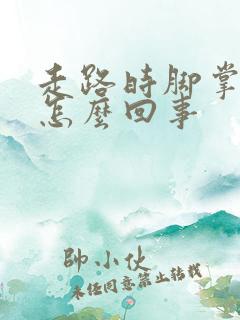 走路时脚掌
怎麼回事
帥小伙
未经同意禁止转载